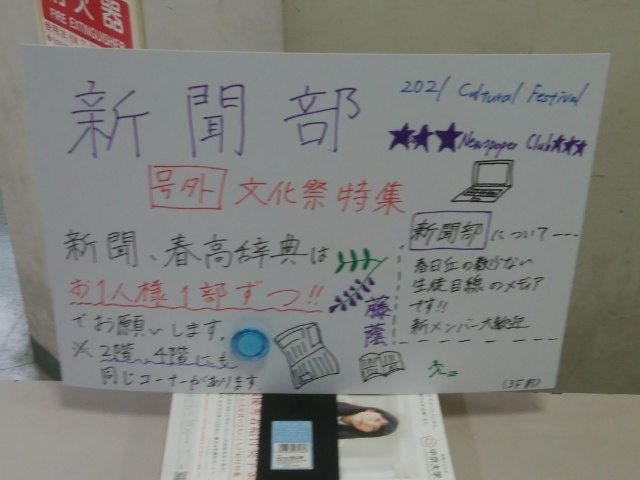 火器
FIRE EXTINGUISHER
新聞部
2021 Cultural Festival
★★★Newspaper Club★★★
号外 文化祭特集
新聞、春高辞典は
お1人様1部ずつ!!
でお願いします。
※2階、4階にも
同じコーナーがあります
藤蔭
新聞部について
春日丘の数少ない
生徒目線のメディア
です!!
新メンバー大歓迎
中京大学